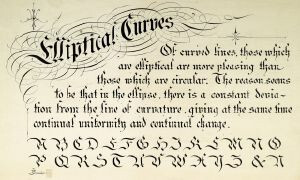 Elliptical Curves
Of curved lines, those which
are elliptical are more pleasing than
those which are circular. The reason seems
to be that in the ellipse, there is a constant devia-
tion from the line of curvature, giving at the same time
continual uniformity and continual change.
A B C D E F G H I J K L M N O
P Q R S T U V W X Y Z & N